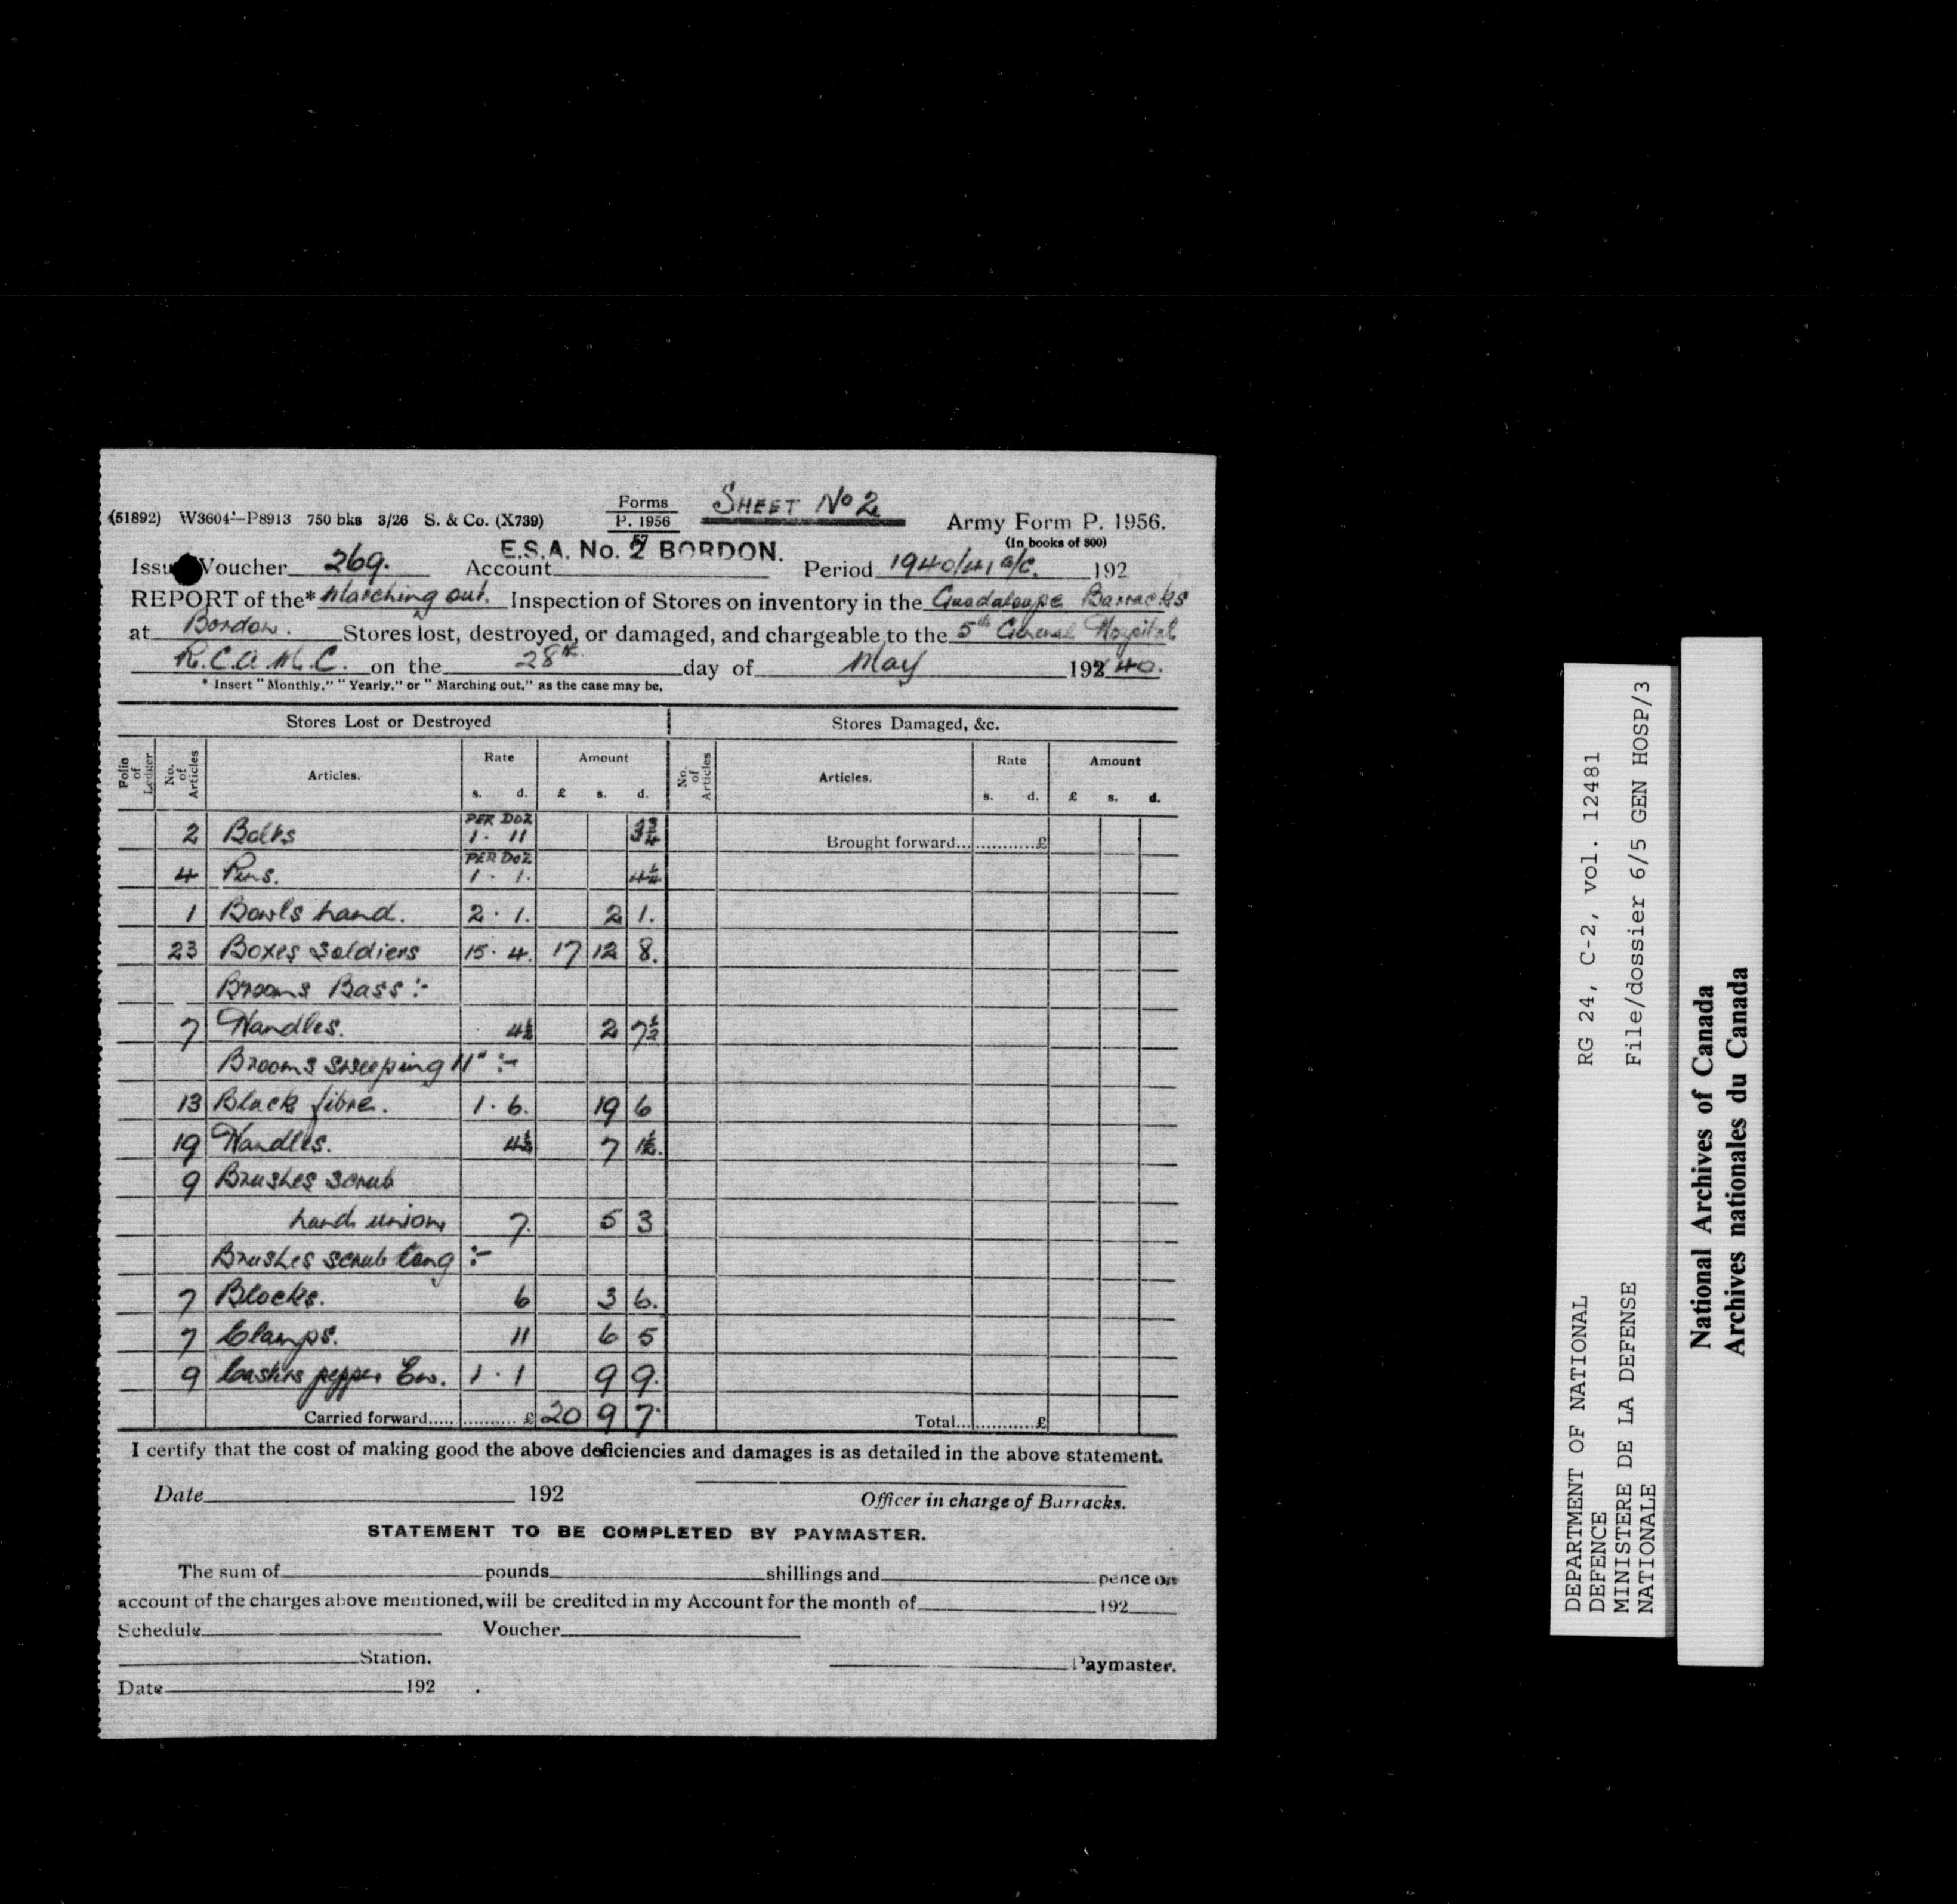 (51892) W3604—P8913 750 bks 3/26 S. & Co. (X739) Forms P. 1956 57 SHEET No 2 Army Form P. 1956.
(In books of 300)
E.S.A. No. 2 BORDON.
Issue Voucher 269. Account Period 1940/41 a/c. 192
REPORT of the* Marching out. Inspection of Stores on inventory in the Guadaloupe Barracks
at Bordon. Stores lost, destroyed, or damaged, and chargeable to the 5th General Hospital
R.C.A.M.C. on the 28th day of May 192 40.
* Insert "Monthly," "Yearly," or "Marching out," as the case may be,
Stores Lost or Destroyed Stores Damaged, &c.
Folio of Ledger No. of Articles Articles. Rate s. d. Amount £ s. d. No. of Articles Articles. Rate s. d. Amount £ s. d.
2 Bolts PER DOZ 1. 11 3¾ Brought forward............... £
4 Pins. PER DOZ 1. 1. 4¼
1 Bowls hand. 2. 1. 2 1.
23 Boxes soldiers 15. 4. 17 12 8.
Brooms Bass :-
7 Handles. 4½ 2 7½
Brooms sweeping 11" :-
13 Black fibre. 1. 6. 19 6
19 Handles. 4½ 7 1½.
9 Brushes scrub
hand union 7. 5 3
Brushes scrub long :-
7 Blocks. 6 3 6.
7 Clamps. 11 6 5
9 Casters pepper 1. 1 9 9.
Carried forward............... £ 20 9 7. Total............... £
I certify that the cost of making good the above deficiencies and damages is as detailed in the above statement.
Date 192 Officer in charge of Barracks.
STATEMENT TO BE COMPLETED BY PAYMASTER.
The sum of pounds shillings and pence on
account of the charges above mentioned, will be credited in my Account for the month of 192
Schedule Voucher
Station. Paymaster.
Date 192 .
DEPARTMENT OF NATIONAL DEFENCE RG 24, C-2, vol. 12481
MINISTERE DE LA DEFENSE NATIONALE File/dossier 6/5 GEN HOSP/3
National Archives of Canada
Archives nationales du Canada